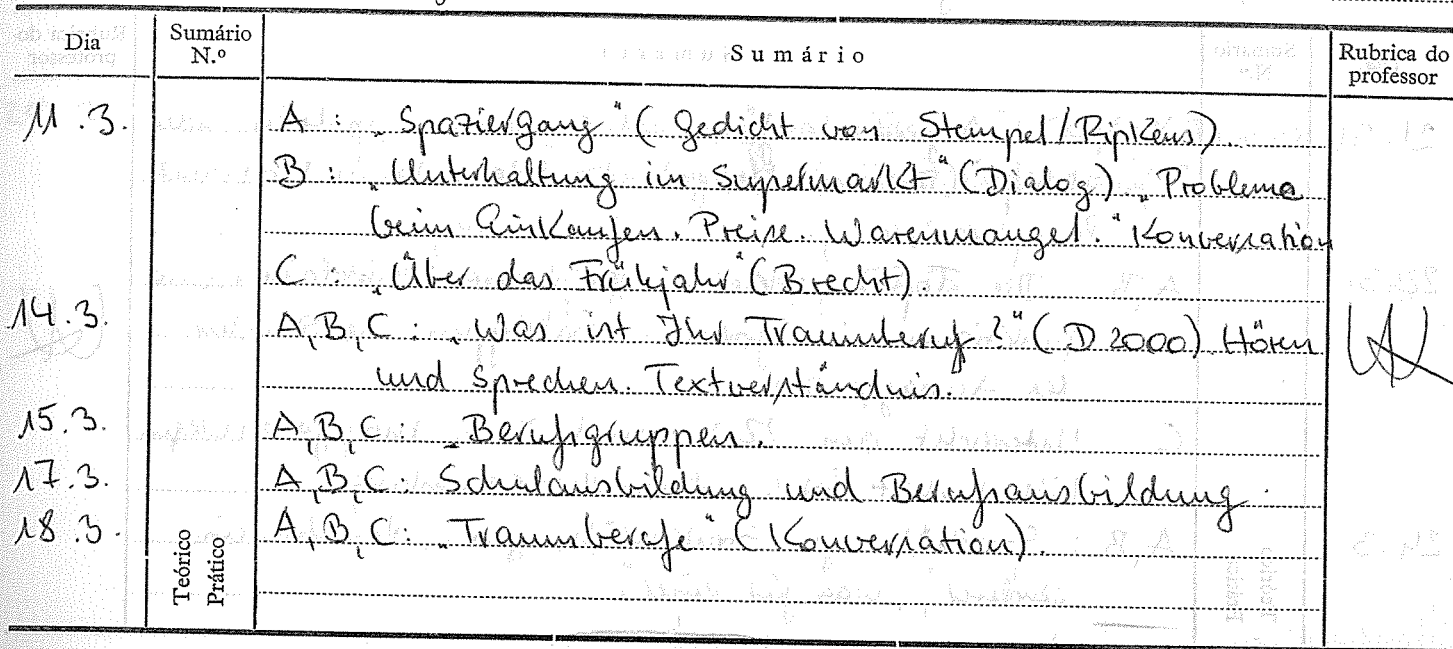 Dia Sumário N.º Sumário Rubrica do professor
11.3. A: „Spaziergang" (Gedicht von Stempel/Ripkens).
B: „Unterhaltung im Supermarkt" (Dialog) „Probleme
beim Einkaufen. Preise. Warenmangel." Konversation
C: „Über das Frühjahr" (Brecht).
14.3. A, B, C: „Was ist Ihr Traumberuf?" (D 2000) Hören
und Sprechen. Textverständnis.
15.3. A, B, C: „Berufsgruppen.
17.3. A, B, C: Schulausbildung und Berufsausbildung.
18.3. A, B, C: „Traumberufe" (Konversation).
Teórico
Prático